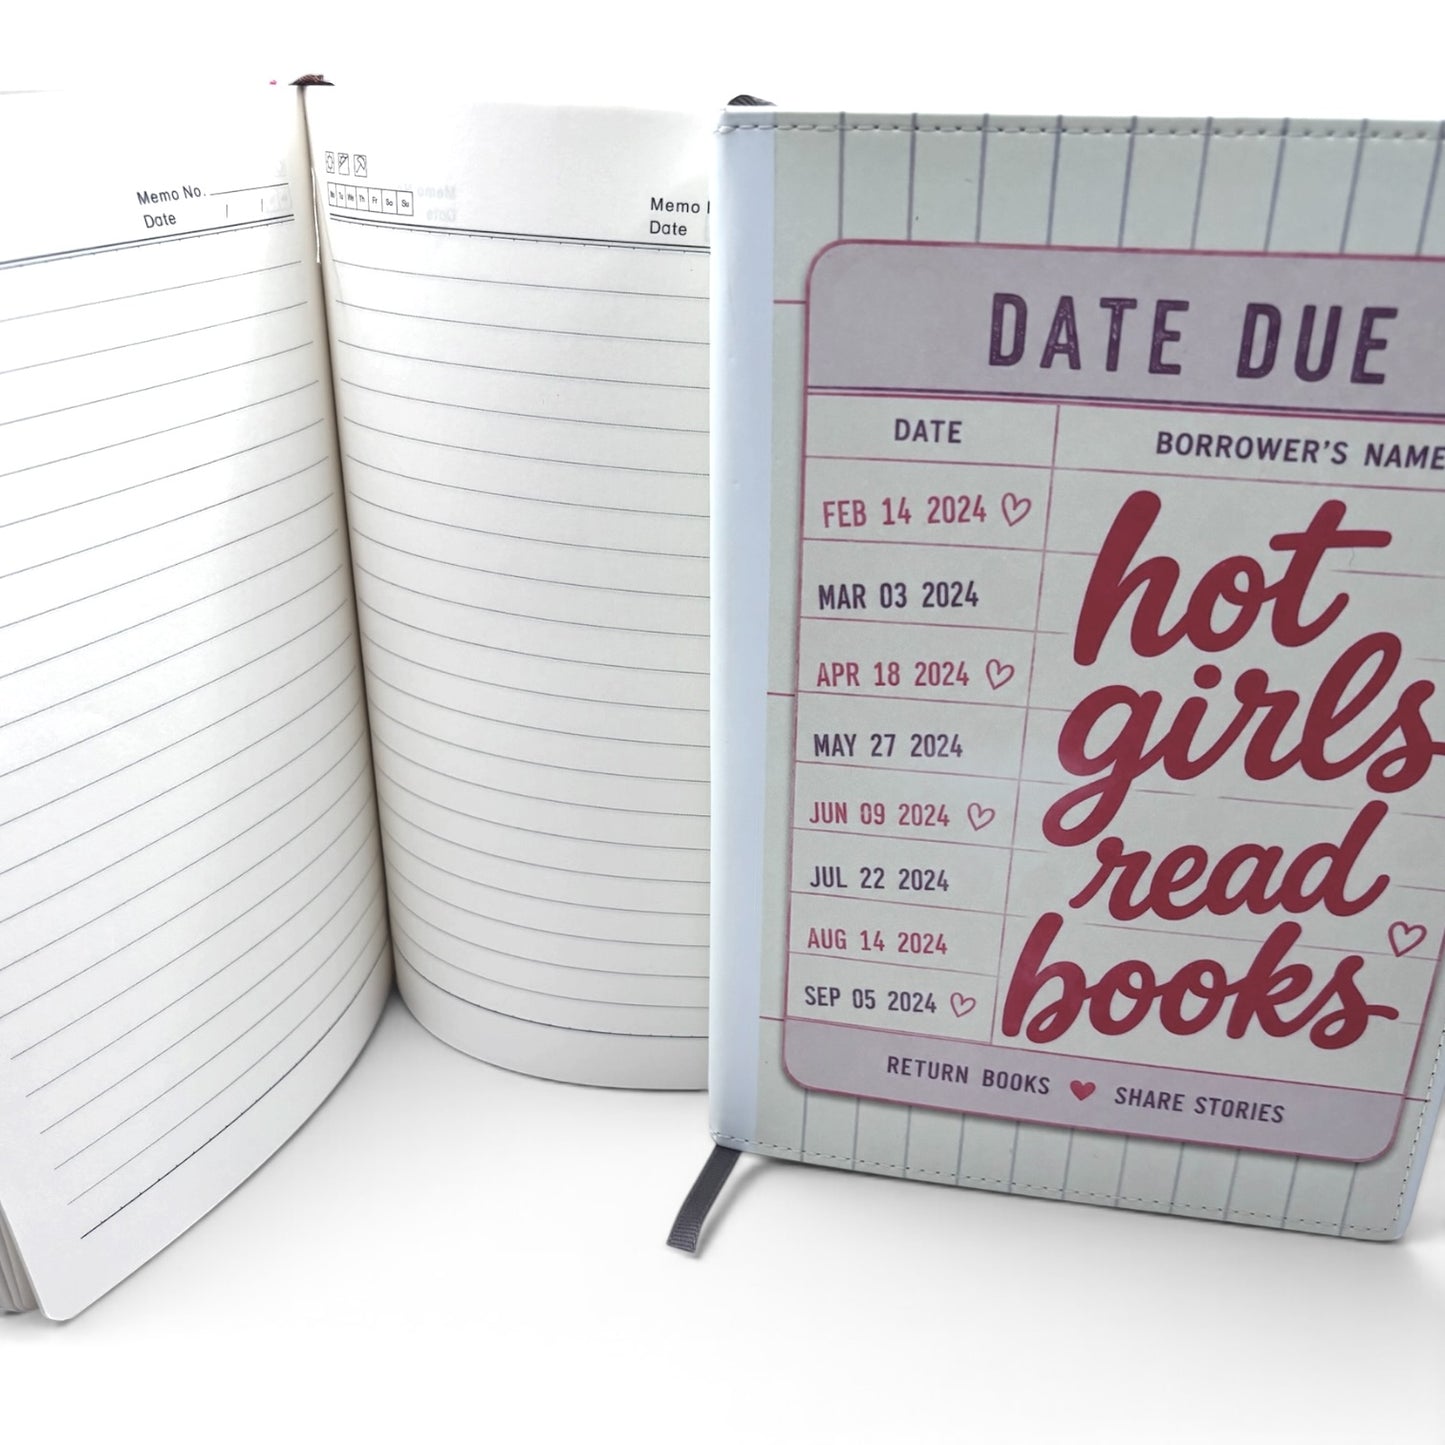 Memo No.
Date / /
Mo Tu We Th Fr Sa Su
Memo
Date
DATE DUE
DATE
BORROWER'S NAME
FEB 14 2024
MAR 03 2024
APR 18 2024
MAY 27 2024
JUN 09 2024
JUL 22 2024
AUG 14 2024
SEP 05 2024
hot
girls
read
books
RETURN BOOKS ♥ SHARE STORIES